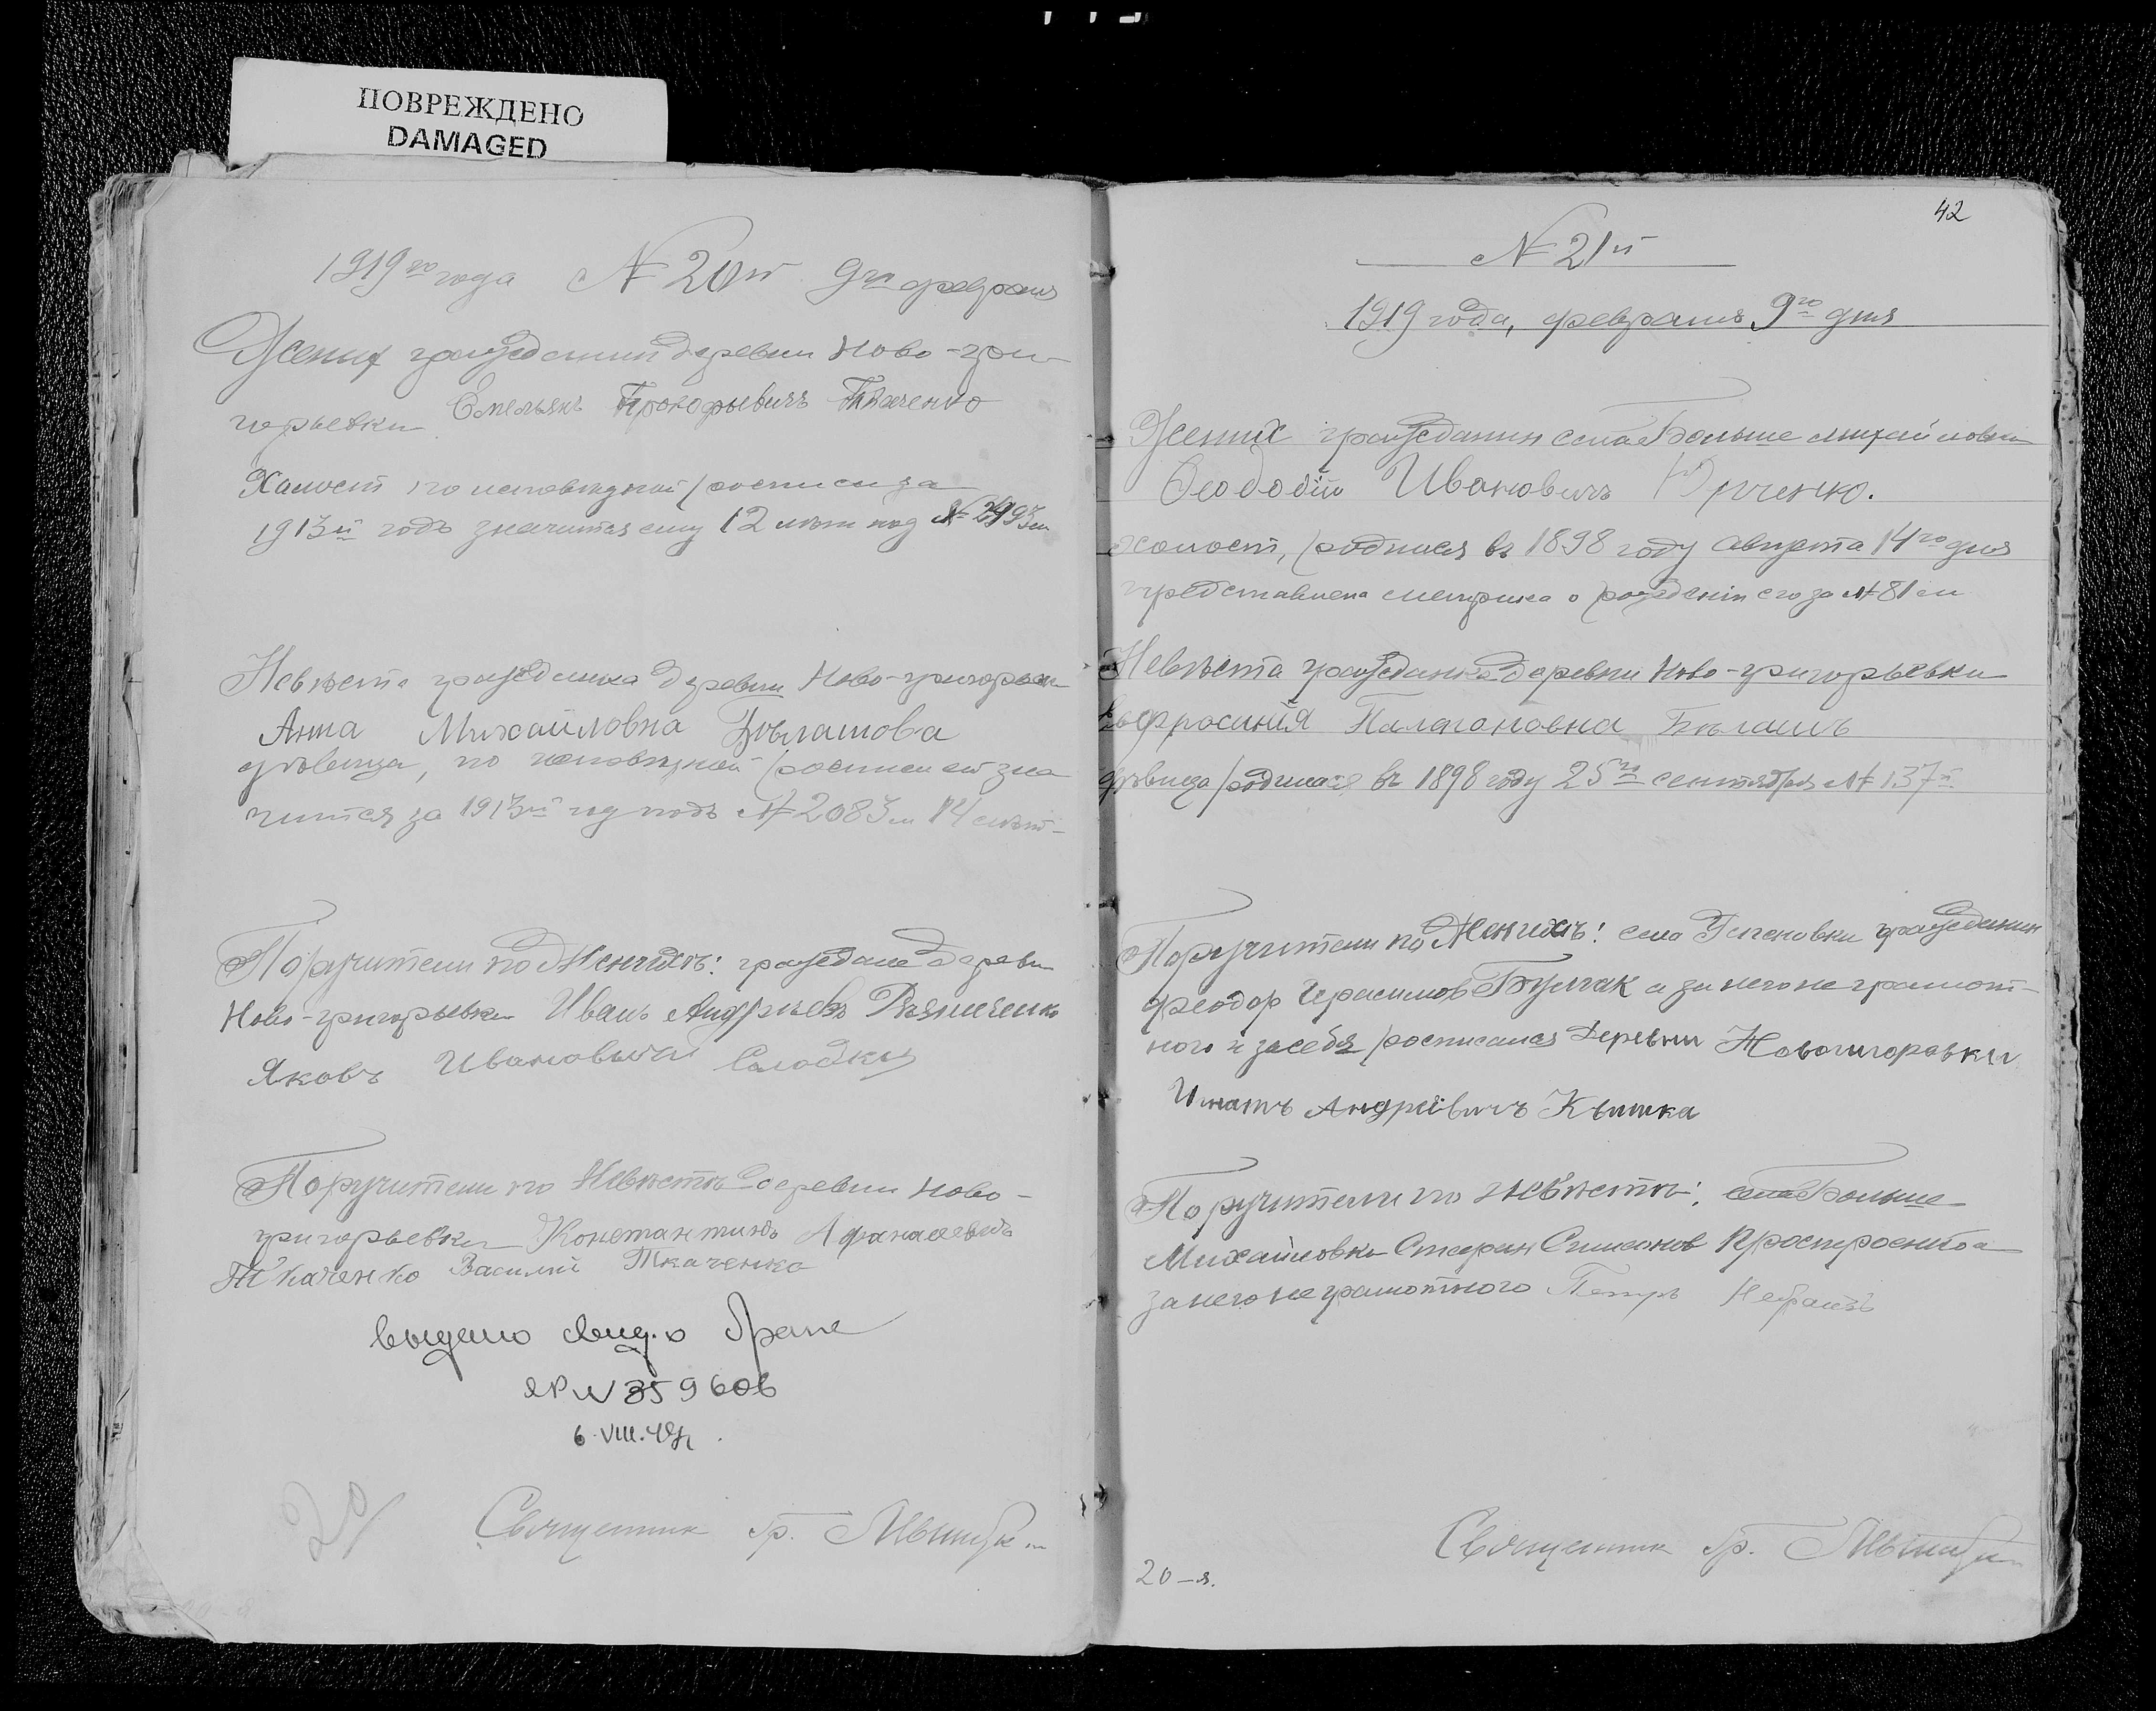 ПОВРЕЖДЕНО
DAMAGED
1919го года № 20й 9го февраля
Жених гражданин деревни Ново-гри-
горьевки Емельянъ Прокофьевичъ Ткаченко
Холост по исповедной росписи за
1913й годъ значится ему 12 летъ под № 2993м
Невѣста гражданка деревни Ново-григорьевки
Анна Михайловна Бѣлашова
дѣвица, по исповѣдной росписи ей зна
чится за 1913й год подъ № 2083м 14 лѣт-
Поручители по Женихѣ: граждане деревни
Ново-григорьевки Иванъ Андрѣевъ
Яковъ Ивановичъ Солодкий
Поручители по Невѣстѣ деревни Ново-
григорьевки Константинъ Афанасевичъ
Ткаченко Василий Ткаченко
выдано свид. о браке
№ 359606
6.VIII.
20
Священник Гр.
42
№ 21й
1919 года, февраля 9го дня
Жених гражданин села Больше михайловки
Ѳеодосій Ивановичъ Юрченко.
холост, родился въ 1898 году августа 14го дня
представлена метрика о рождении его за № 81м
Невѣста гражданка деревни Ново-григорьевки
Бѣлашъ
дѣвица родилась въ 1898 году 25го сентября № 137й
Поручители по Женихѣ: села Успеновки гражданин
феодор Герасимов Булгак а за него не грамот-
ного и за себя росписался деревни Новогигоровки
Игнатъ Андреївичъ Кышка
Поручители по Невѣстѣ: села Больше
Михайловки Стефан Симонов а
за него не грамотного Петръ
Священник Гр.
20-я.